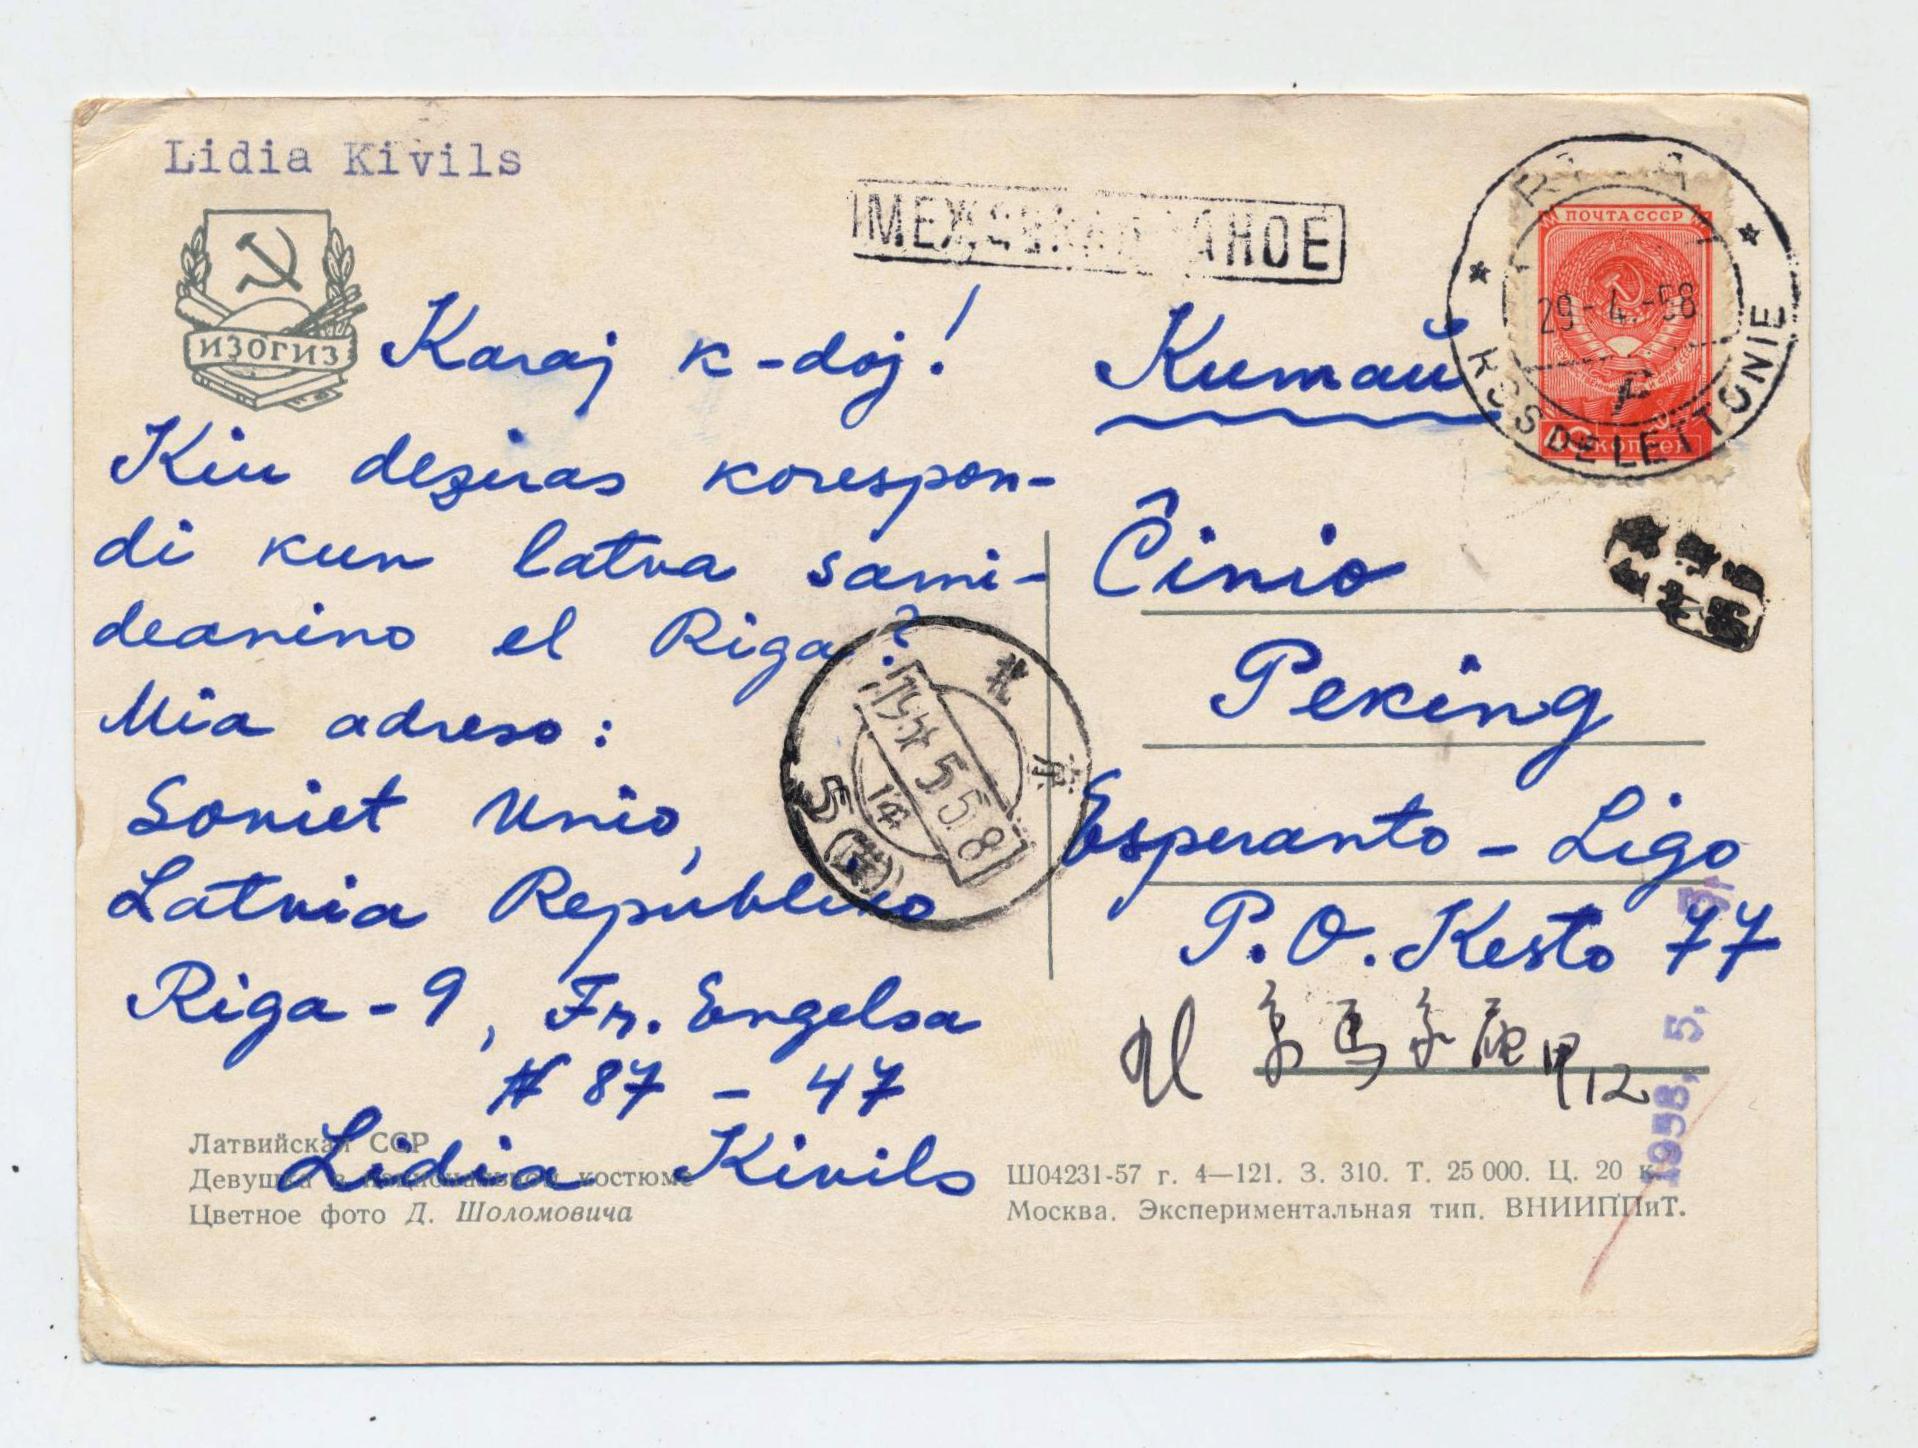 Lidia Kivils
ИЗОГИЗ
Karaj k-doj!
Kiu deziras korespon-
di kun latva sami-
deanino el Riga?
Mia adreso:
Soviet Unio,
Latvia Republiko
Riga-9, Fr. Engelsa
N 87 - 47
Lidia Kivils
МЕЖДУНАРОДНОЕ
ПОЧТА СССР
40 копеек
RIGA
29-4.-58
RSS DE LETTONIE
Китай
Ĉinio
Peking
Esperanto - Ligo
P.O. Kesto 77
北京
甲12
北京
5 5 8
14
5
1958, 5, 3,
Латвийская ССР
Девушка в национальном костюме
Цветное фото Д. Шоломовича
Ш04231-57 г. 4—121. З. 310. Т. 25 000. Ц. 20 к.
Москва. Экспериментальная тип. ВНИИППиТ.